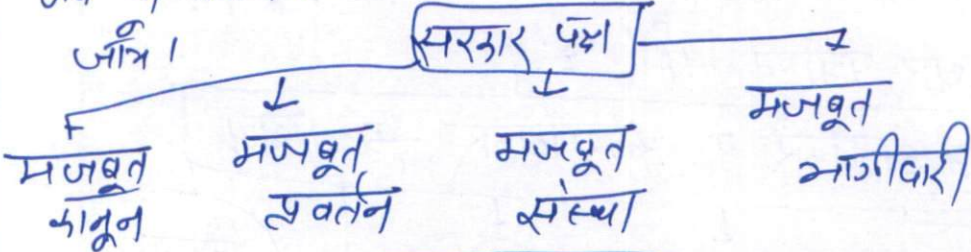 जाँच।
सरकार पक्ष
मजबूत कानून
मजबूत प्रवर्तन
मजबूत संस्था
मजबूत भागीदारी